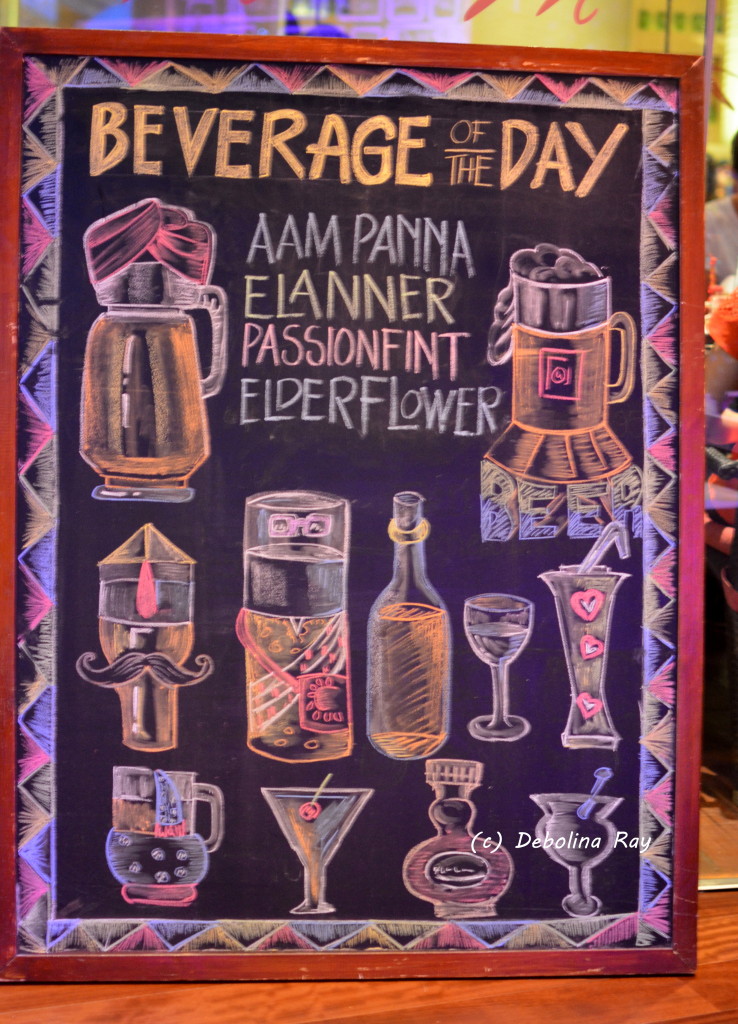 BEVERAGE OF THE DAY
AAM PANNA
ELANNER
PASSIONFINT
ELDERFLOWER
BEER
(c) Debolina Ray